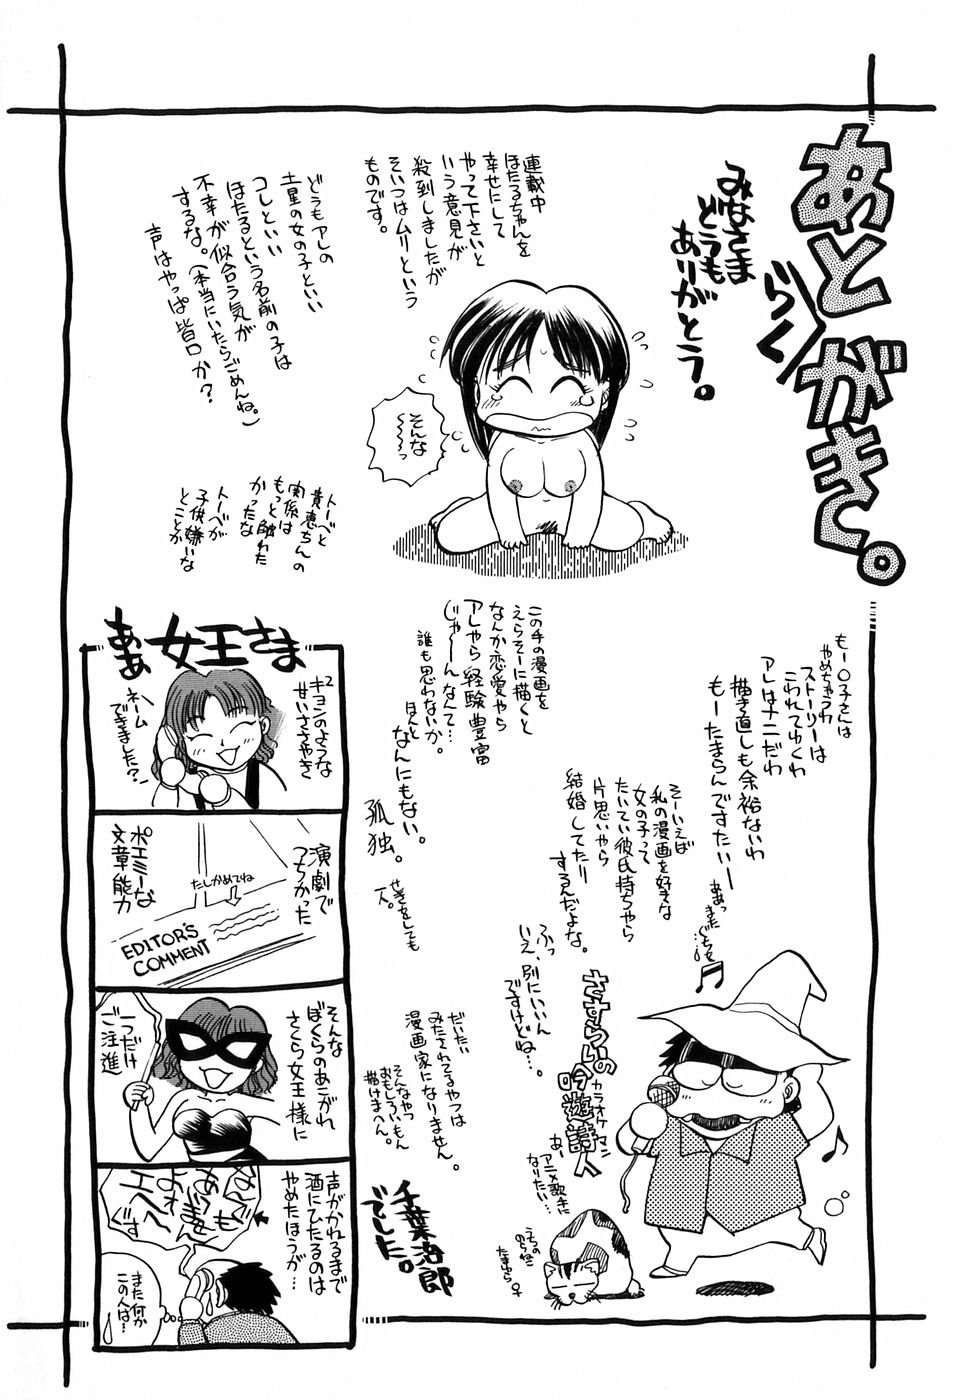 あとがき。
らく
みなさま
どうも
ありがとう。
連載中
ほたるちゃんを
幸せにして
やって下さいと
いう意見が
殺到しましたが
そいつはムリという
ものです。
そんな
〜〜〜っ
どうもアレの
土星の女の子といい
コレといい
ほたるという名前の子は
不幸が似合う気が
するな。(本当にいたらごめんね。)
声はやっぱ皆口か?
トーベと
貴恵ちんの
関係は
もっと触れた
かったな
トーベが
子供嫌いな
とことか
もー〇子さんは
やめちゃうわ
ストーリーは
こわれてゆくわ
アレはナニだわ
描き直しも余裕ないわ
もーたまらんですたいー
ああっ
また
ぐちを
この手の漫画を
えらそーに描くと
なんか恋愛やら
アレやら経験豊富
じゃーんなんて…
誰も思わないか。
ほんと
なんにもない。
孤独。
せきをしても
一人。
そーいえば
私の漫画を好きな
女の子って
たいてい彼氏持ちやら
片思いやら
結婚してたり
するんだよな。
ふっ
いえ、別にいいん
ですけどね…。
だいたい
みたされてるやつは
漫画家になりません。
そんなやつ
おもしろいもん
描けまへん。
さすらいの
吟遊詩人
カラオケマン
あー
アニメ歌手に
なりたい…
うちの
のら猫
たまゆら♀
千葉治郎
でした。
ああ女王さま
キョン²のような
せいささやき
ネーム
できました?
演劇で
つちかった
ポエミーな
文章能力
たしかめてね
EDITOR'S
COMMENT
そんな
ぼくらのあこがれ
さくら女王様に
一つだけ
ご注進
声がかれるまで
酒にひたるのは
やめたほうが…
なんでも
ありません
よォ
エヘ〜
です
また何か
この人は…